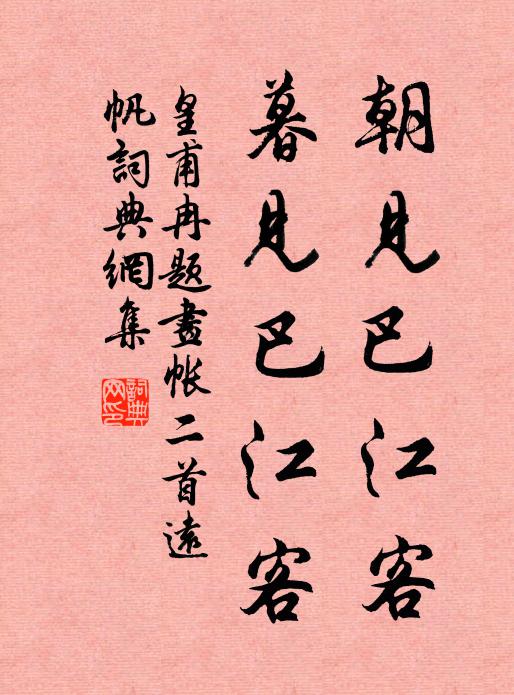 朝見巴江客
暮見巴江客
皇甫冉題畫帳二首遠
帆詞典網集
詞典網印